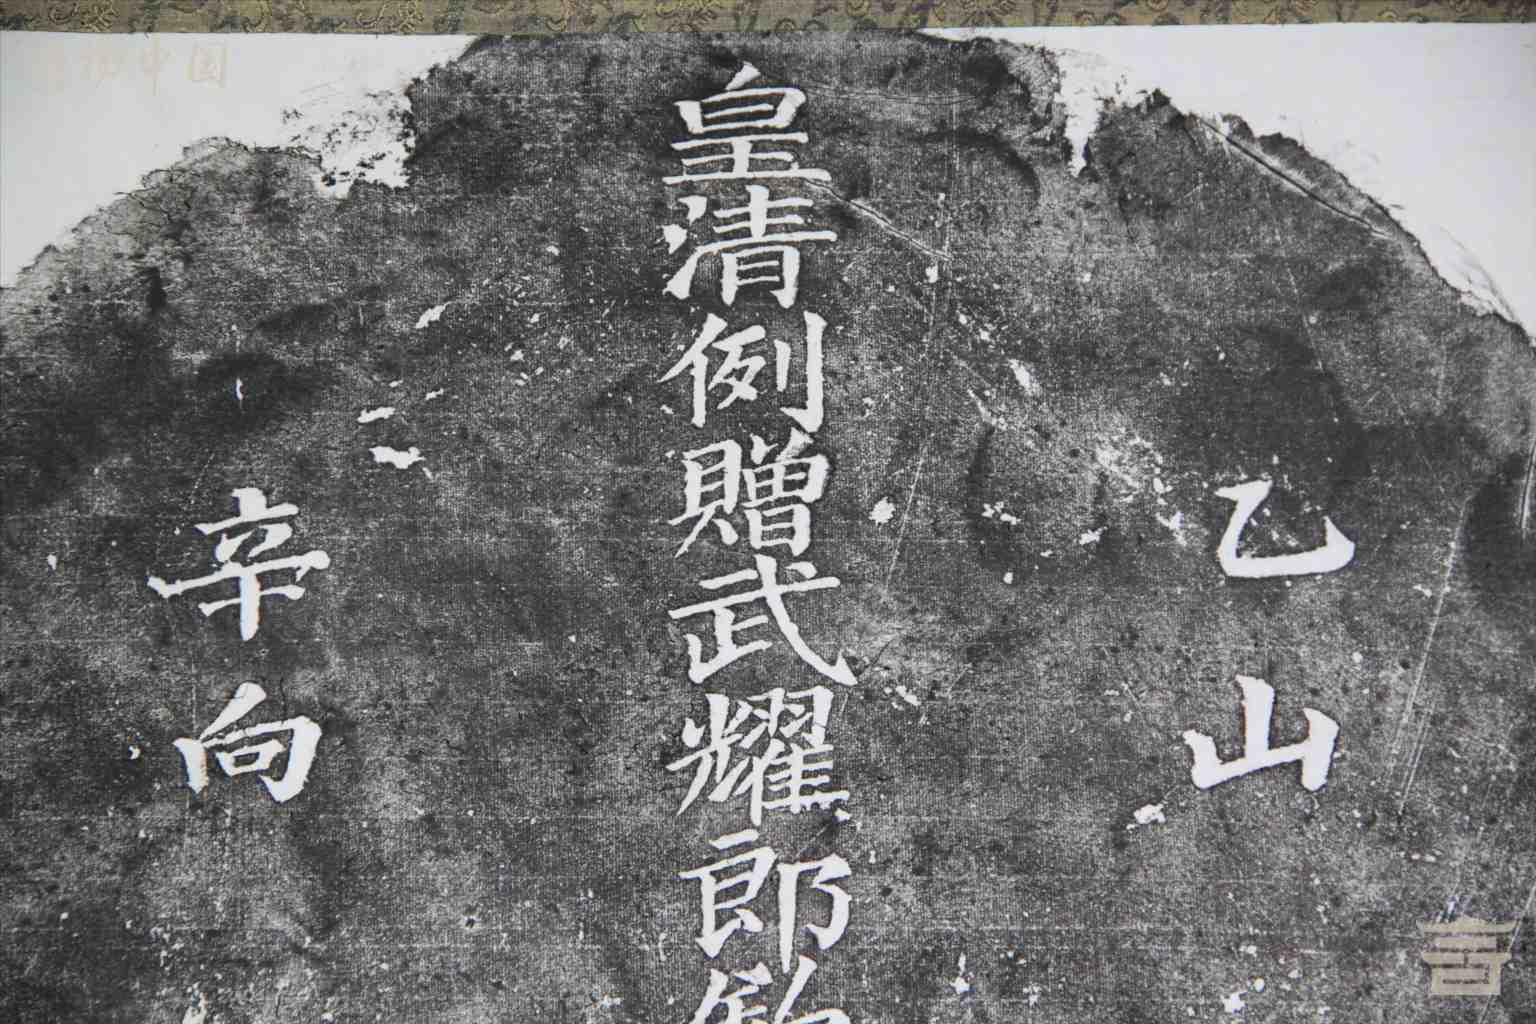 乙山
皇清例贈武耀郎
辛向
中国